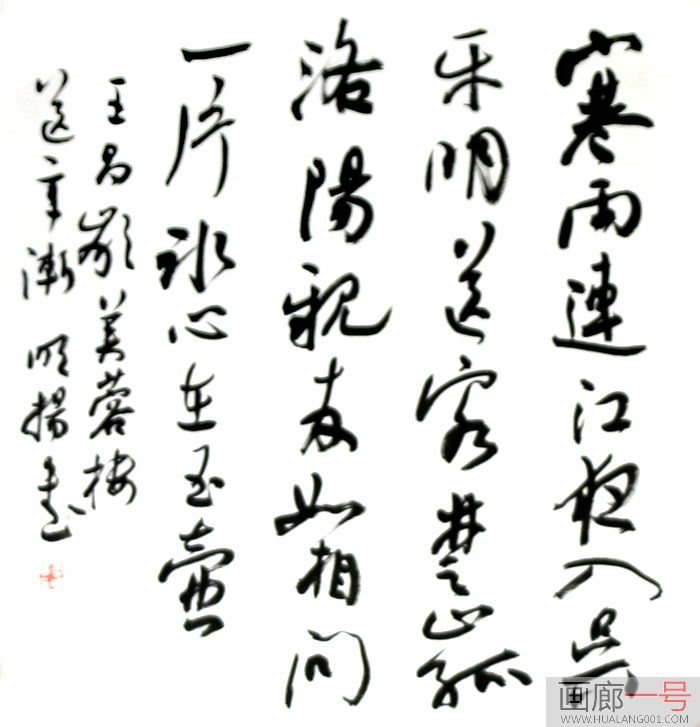 寒雨連江夜入吳
平明送客楚山孤
洛陽親友如相問
一片冰心在玉壺
王昌齡芙蓉楼
送辛漸 揚書
画廊一号
WWW.HUALANG001.COM